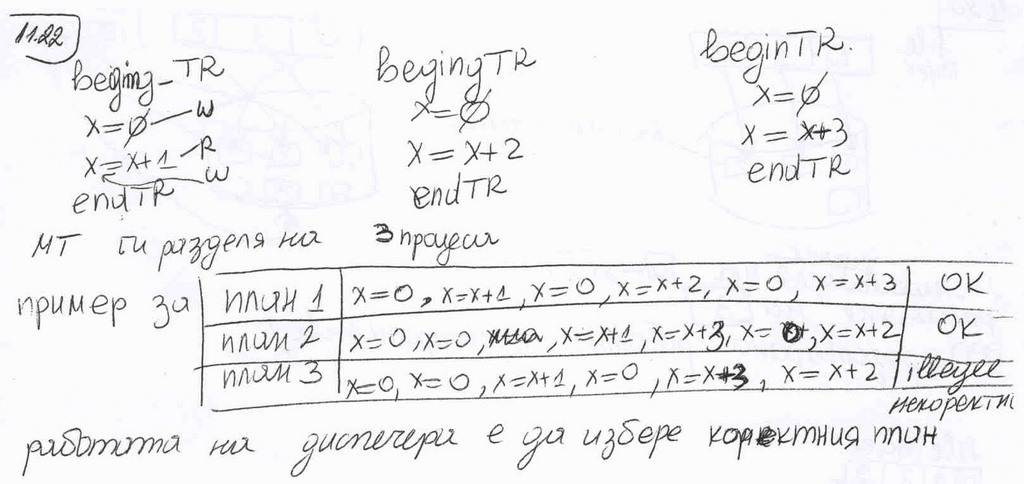 11.22
beging_TR
x=Ø w
x=x+1 R
w
endTR
begingTR
x=Ø
x=x+2
endTR
beginTR.
x=Ø
x=x+3
endTR
МТ ги разделя на 3 процеси
пример за
план 1 x=0, x=x+1, x=0, x=x+2, x=0, x=x+3 OK
план 2 x=0, x=0, x=x+1, x=x+3, x=0, x=x+2 OK
план 3 x=0, x=0, x=x+1, x=0, x=x+3, x=x+2
некоректн
работата на диспечера е да избере коректния план